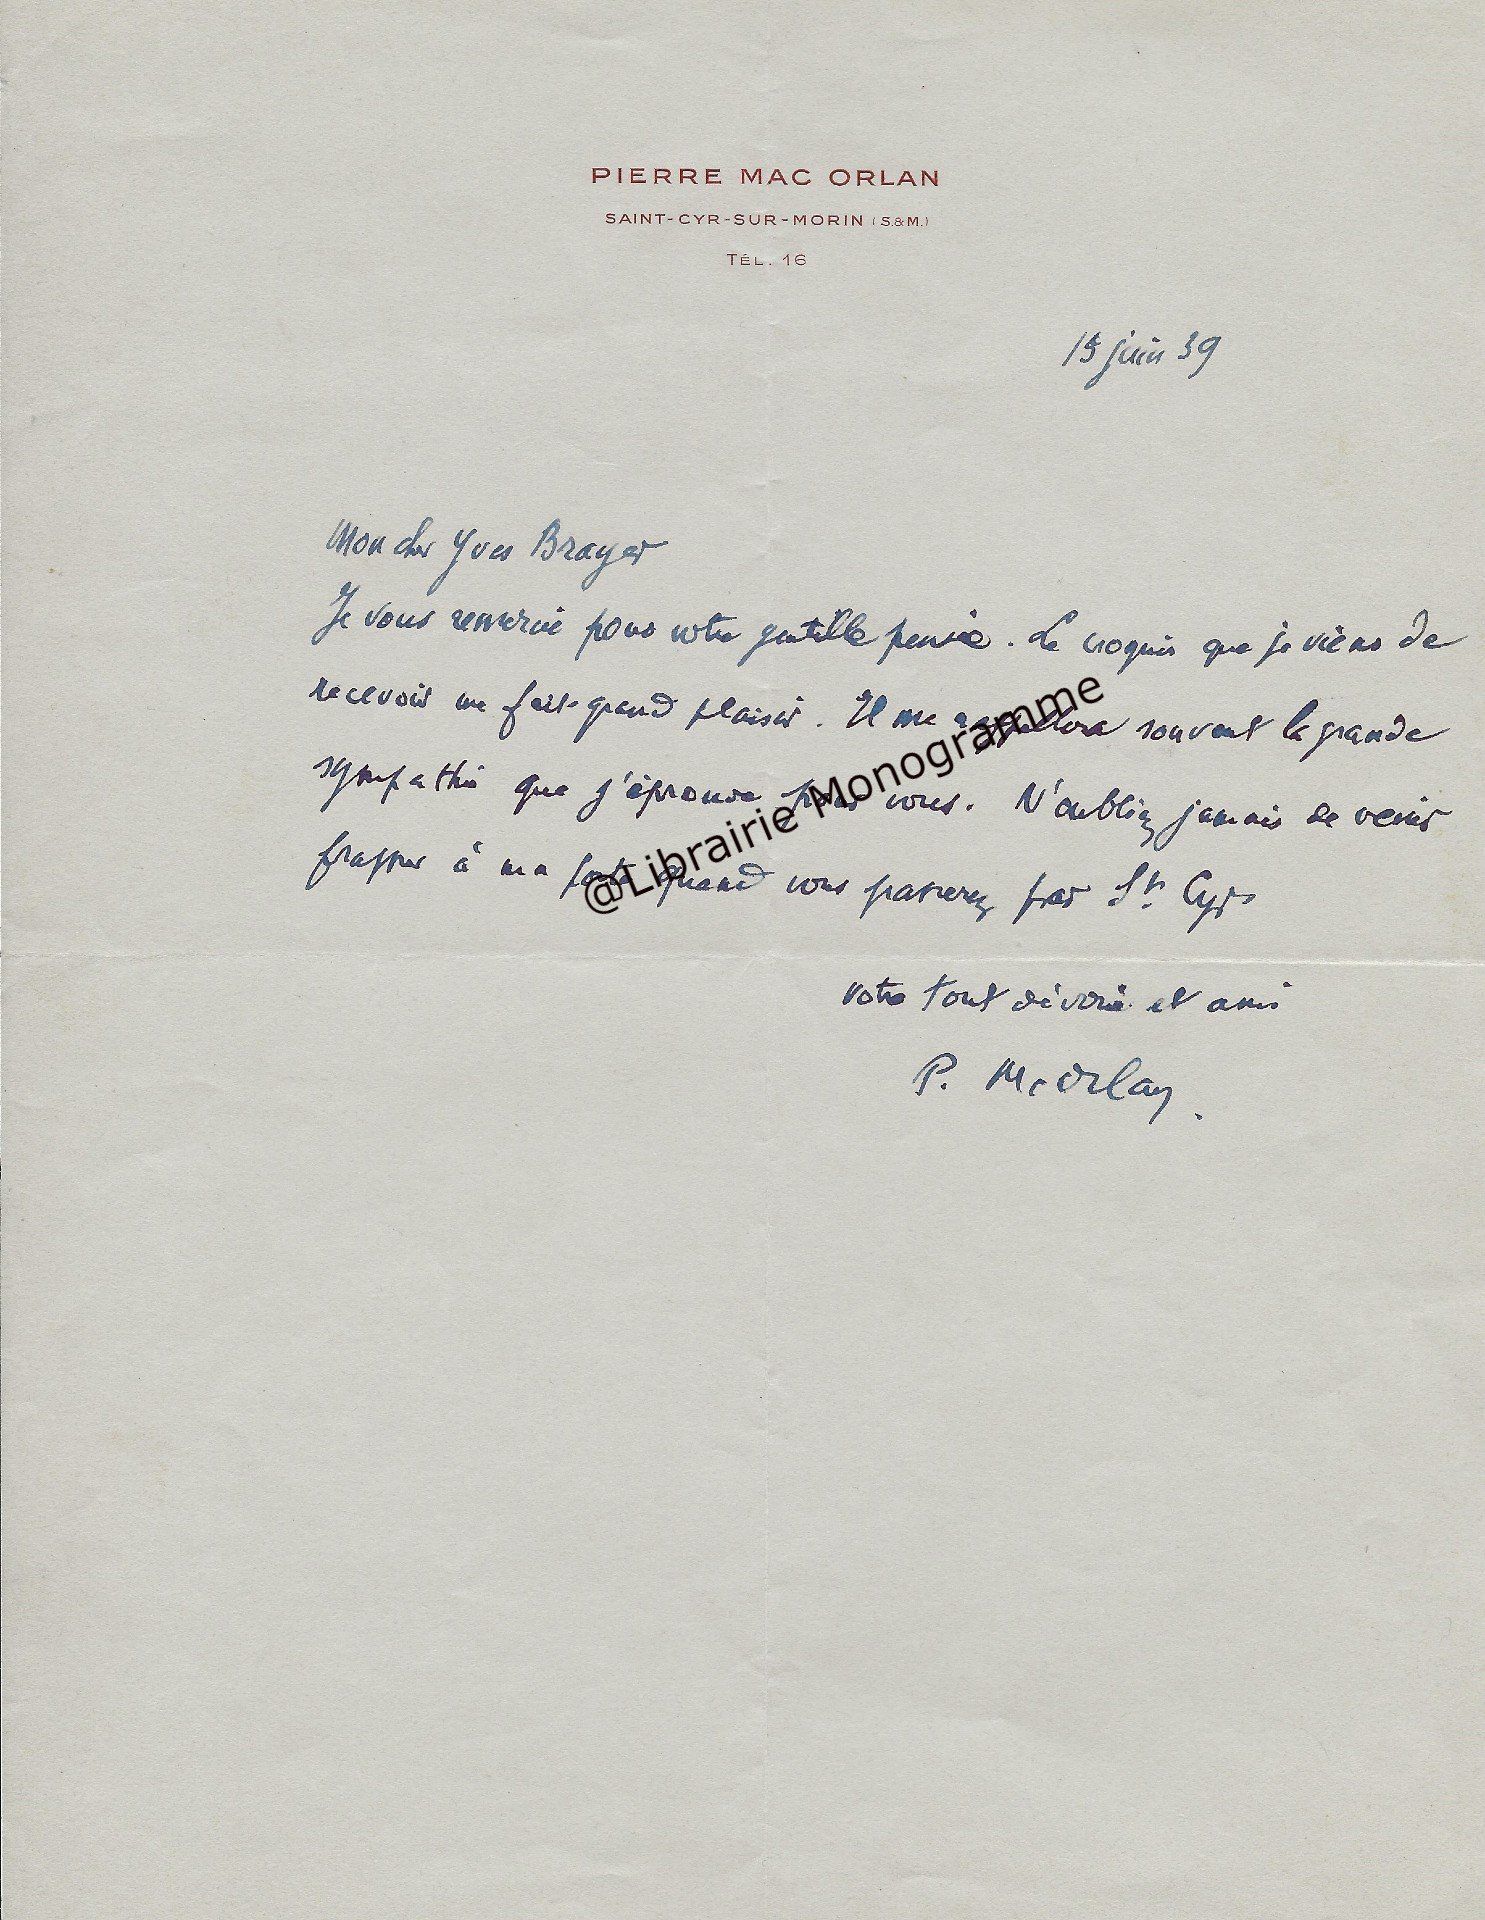 PIERRE MAC ORLAN
SAINT-CYR-SUR-MORIN (S.&M.)
TÉL. 16
15 juin 39
Mon cher Yves Brayer
Je vous remercie pour votre gentille pensée. Le croquis que je viens de
recevoir me fait grand plaisir. Il me rappellera souvent la grande
sympathie que j'éprouve pour vous. N'oubliez jamais de venir
frapper à ma porte quand vous passerez par St. Cyr
@Librairie Monogramme
votre tout dévoué et ami
P. McOrlan.